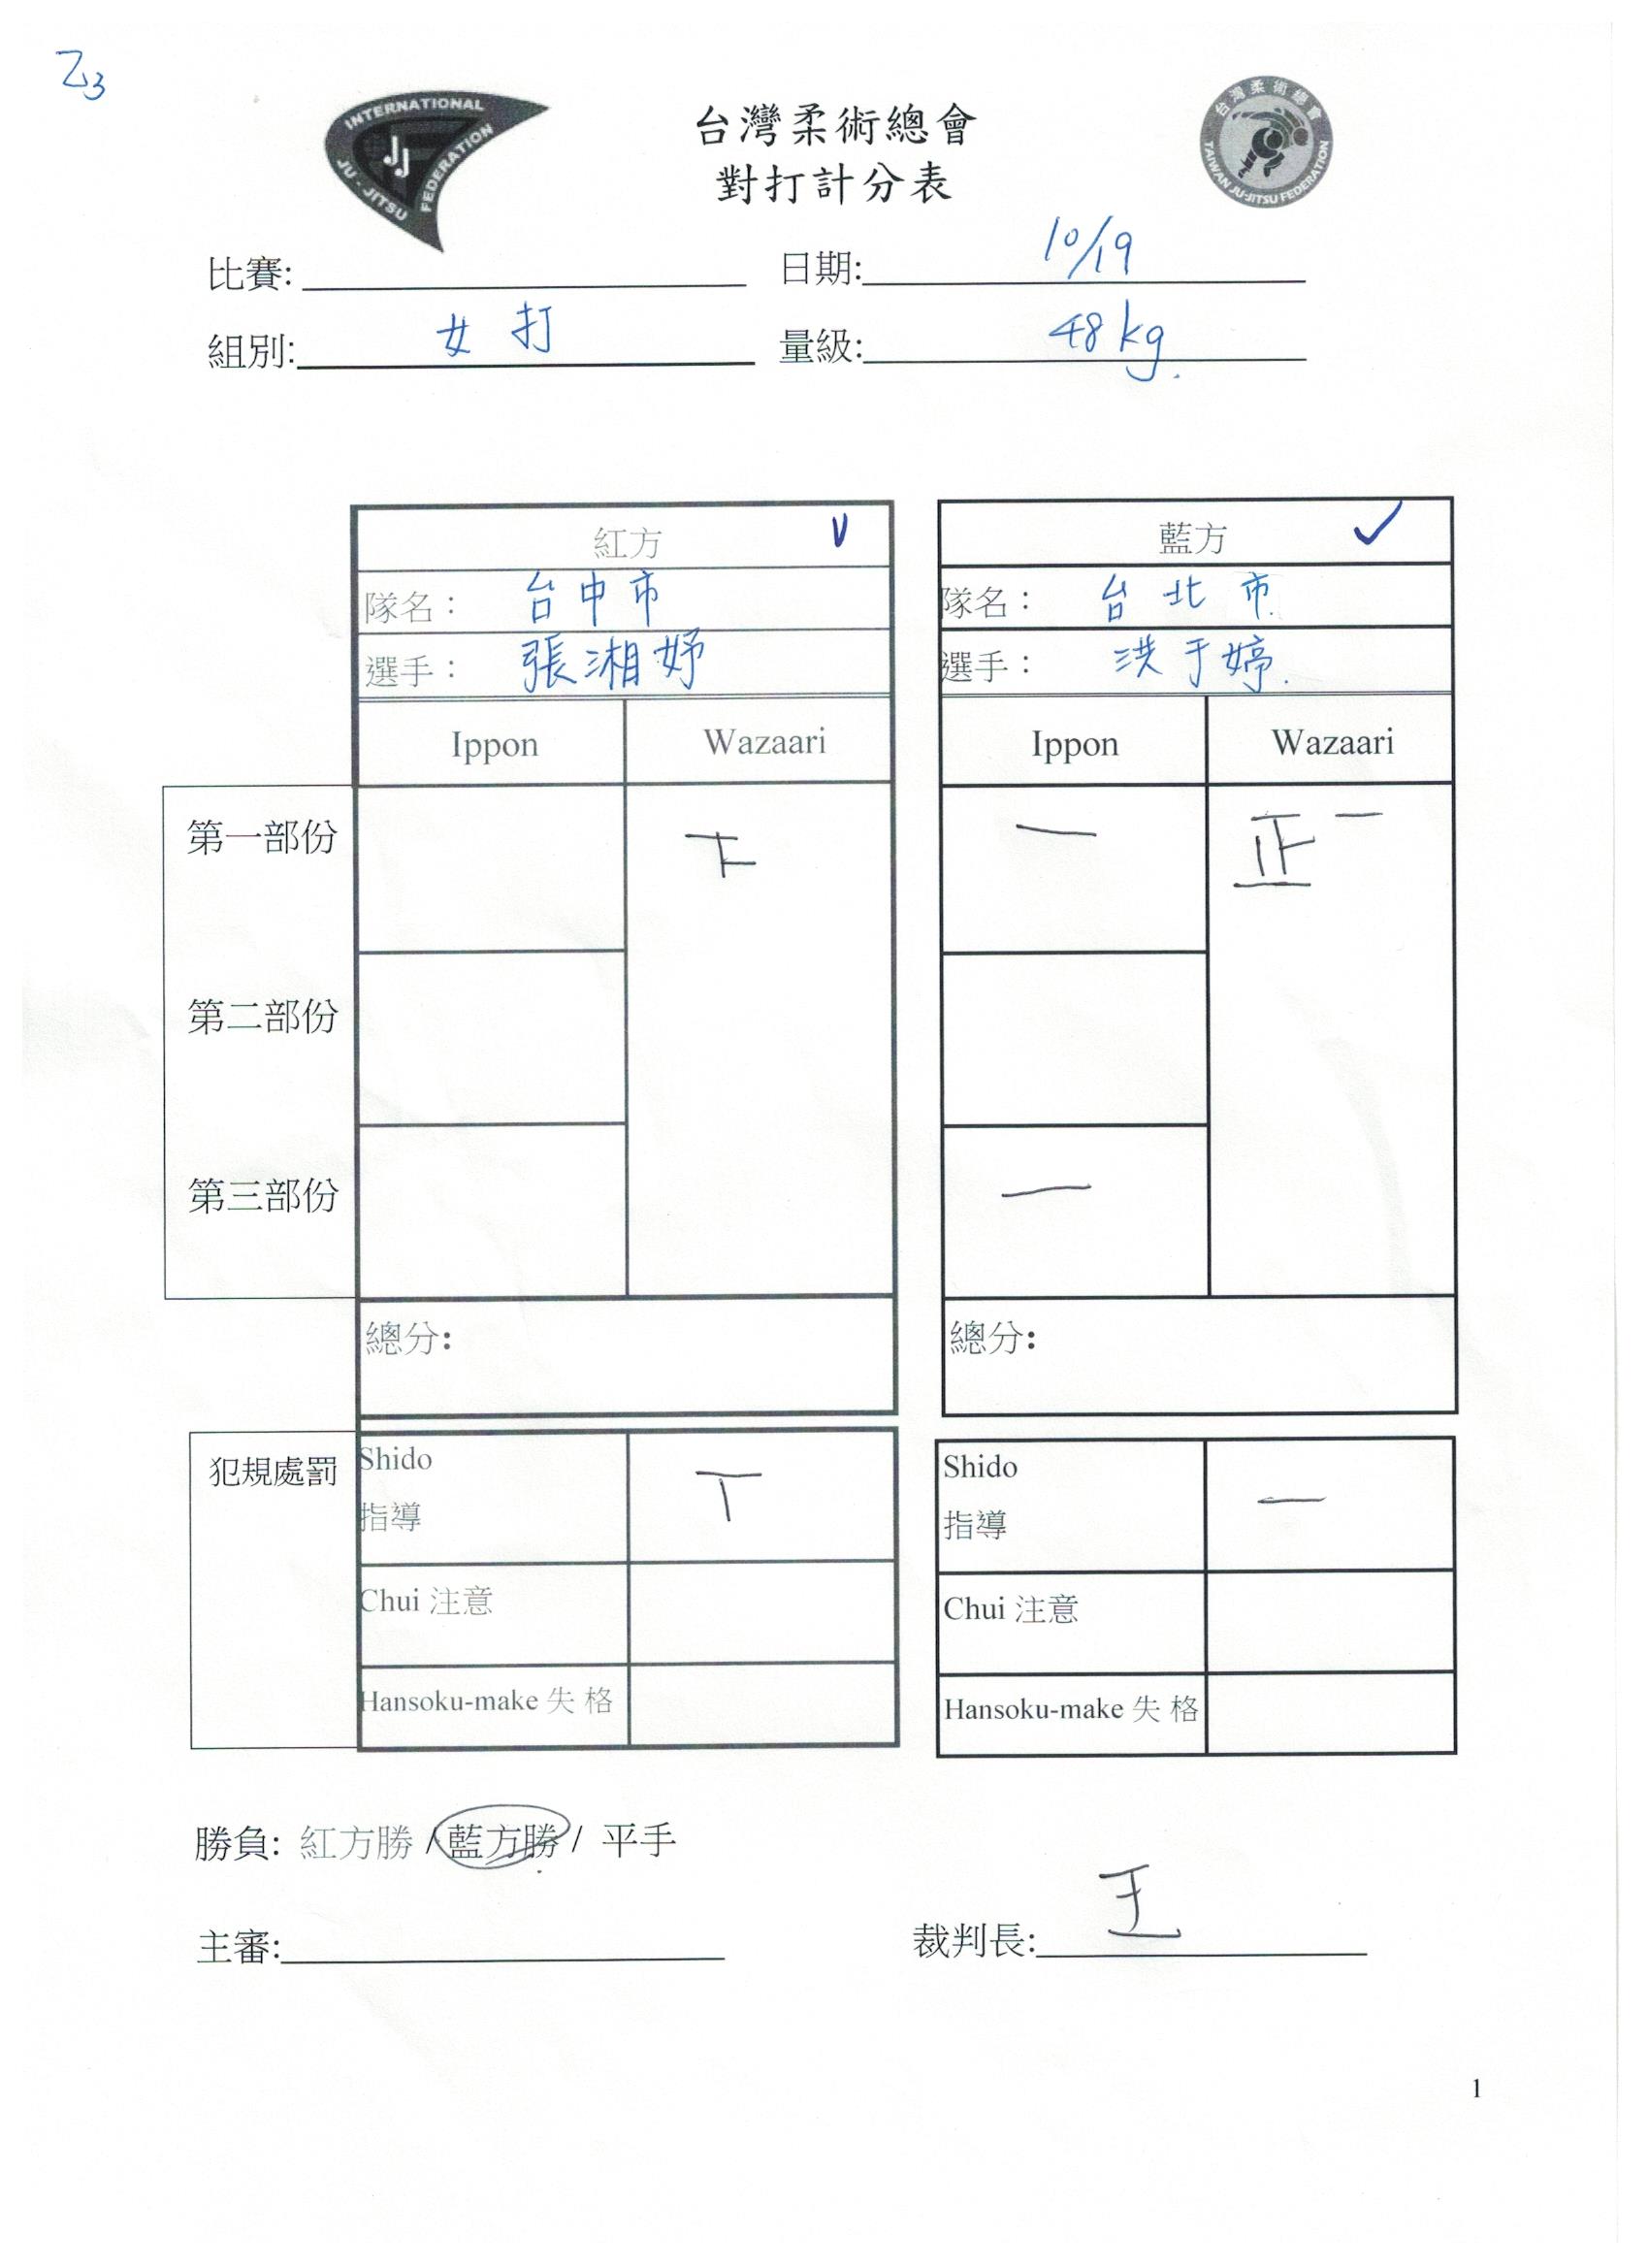 Z3
INTERNATIONAL
JU-JITSU FEDERATION
JJ
台灣柔術總會
對打計分表
台灣柔術總會
TAIWAN JU-JITSU FEDERATION
比賽: 日期: 10/19
組別: 女打 量級: 48kg.
紅方 V 藍方 ✓
隊名: 台中市 隊名: 台北市
選手: 張湘妤 選手: 洪于婷
Ippon Wazaari Ippon Wazaari
第一部份 下 一 正一
第二部份
第三部份 一
總分: 總分:
犯規處罰 Shido 指導 丅 Shido 指導 一
Chui 注意 Chui 注意
Hansoku-make 失格 Hansoku-make 失格
勝負: 紅方勝 / 藍方勝 / 平手
主審: 裁判長: 王
1